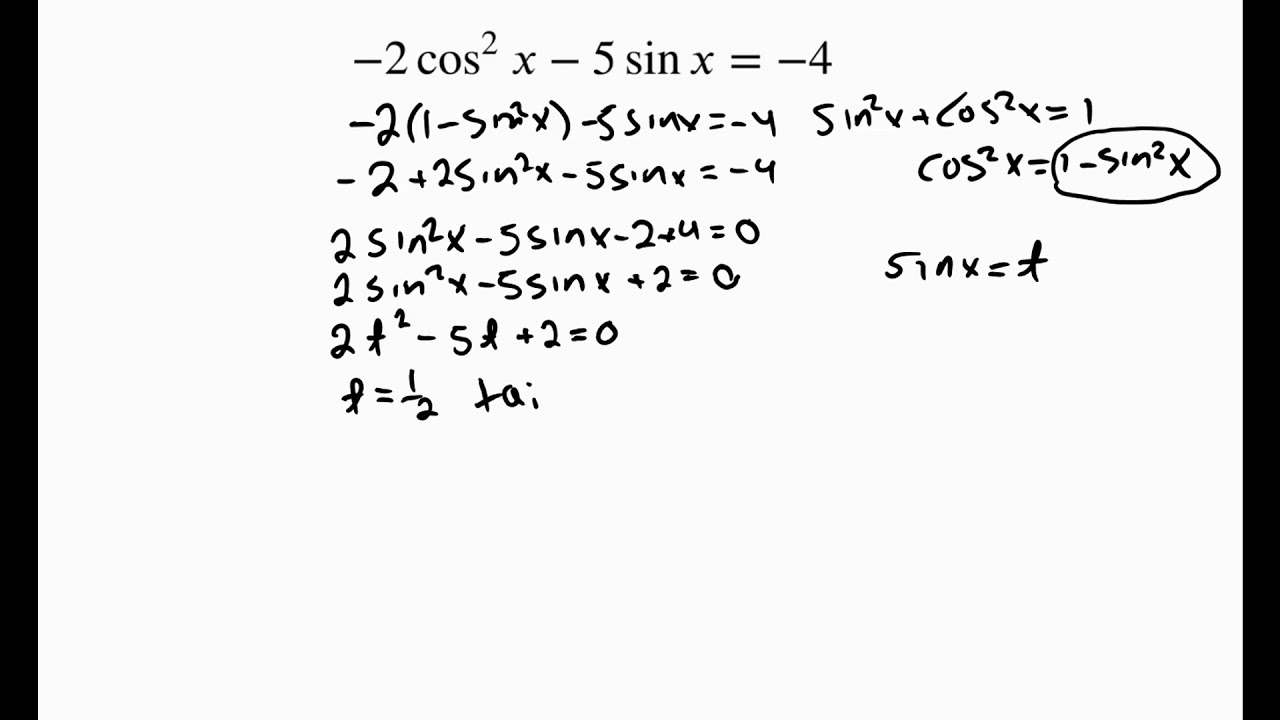 −2 cos² x − 5 sin x = −4
-2(1-sin²x)-5sinx=-4
sin²x+cos²x=1
-2+2sin²x-5sinx=-4
cos²x=1-sin²x
2sin²x-5sinx-2+4=0
sinx=t
2sin²x-5sinx+2=0
2t²-5t+2=0
t=1/2 tai